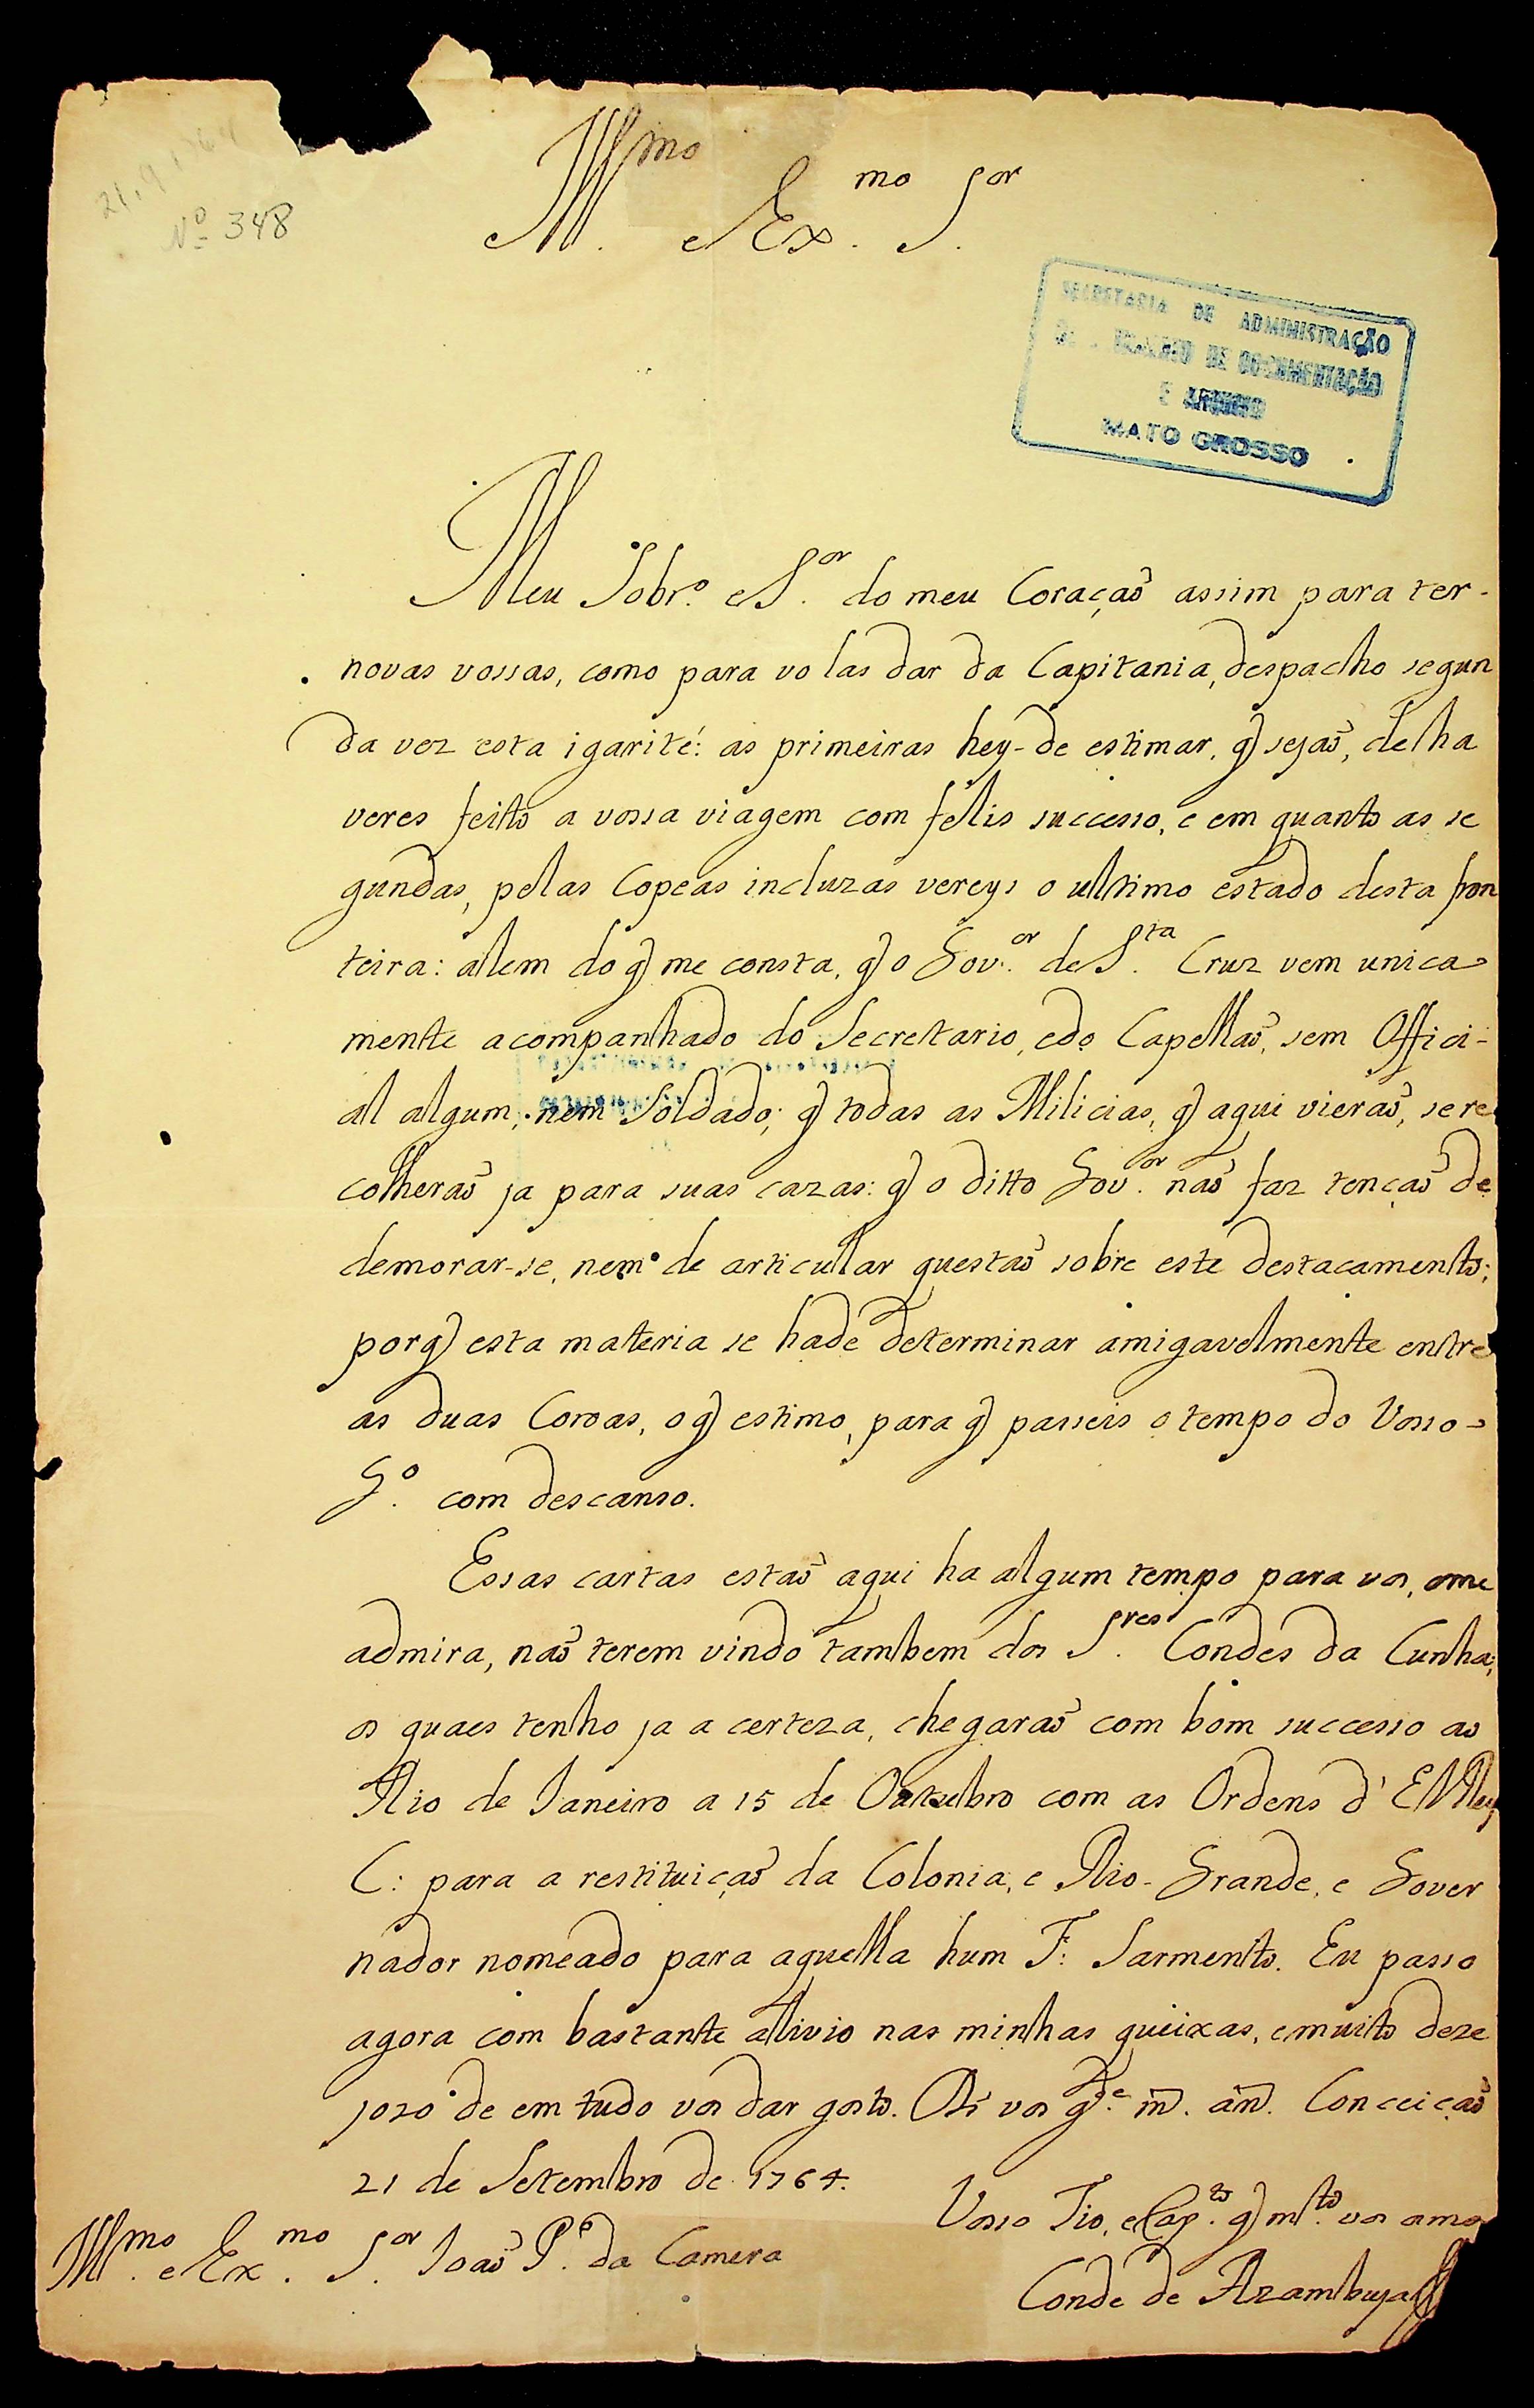 21.9.1764
Nº 348
Illmo e Exmo Sor
SECRETARIA DE ADMINISTRAÇÃO
DE DOCUMENTAÇÃO
E ARQUIVO
MATO GROSSO
Meu Sobr.º e S.or do meu Coraçaõ assim para ter-
novas vossas, como para vo las dar da Capitania, despacho segun
da vez esta igarité: as primeiras hey-de estimar, q̃ sejaõ, de ha
veres feito a vossa viagem com felis successo, e em quanto as se
gundas, pelas Copeas incluzas vereys o ultimo estado desta fron
teira: alem do q̃ me consta, q̃ o Gov.or de S.ta Cruz vem unica
mente acompanhado do Secretario, e do Capellaõ, sem Offici-
al algum, nem Soldado; q̃ todas as Milicias, q̃ aqui vieraõ, se re
colheraõ ja para suas cazas: q̃ o ditto Gov.or naõ faz tençaõ de
demorar-se, nem de articular questaõ sobre este destacamento;
porq̃ esta materia se hade determinar amigavelmente entre
as duas Coroas, o q̃ estimo, para q̃ passeis o tempo do Vosso
G.º com descanso.
Essas cartas estaõ aqui ha algum tempo para vos, e me
admira, naõ terem vindo tambem dos S.res Condes da Cunha,
os quaes tenho ja a certeza, chegaraõ com bom successo ao
Rio de Janeiro a 15 de Outubro com as Ordens d'ElRey
C: para a restituiçaõ da Colonia, e Rio-Grande, e Gover
nador nomeado para aquella hum F: Sarmento. Eu passo
agora com bastante alivio nas minhas queixas, e muito deze
jozo de em tudo vos dar gosto. Ds vos g.de m̃. an̄. Conceiçaõ
21 de Setembro de 1764.
Vosso Tio, e Cap.to q̃ m.to vos ama
Conde de Azambuja
Illmo e Exmo S.or Joaõ P.º da Camera